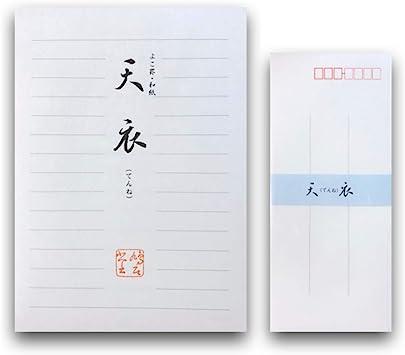 よこ罫・和紙
天衣
(てんね)
天(てんね)衣